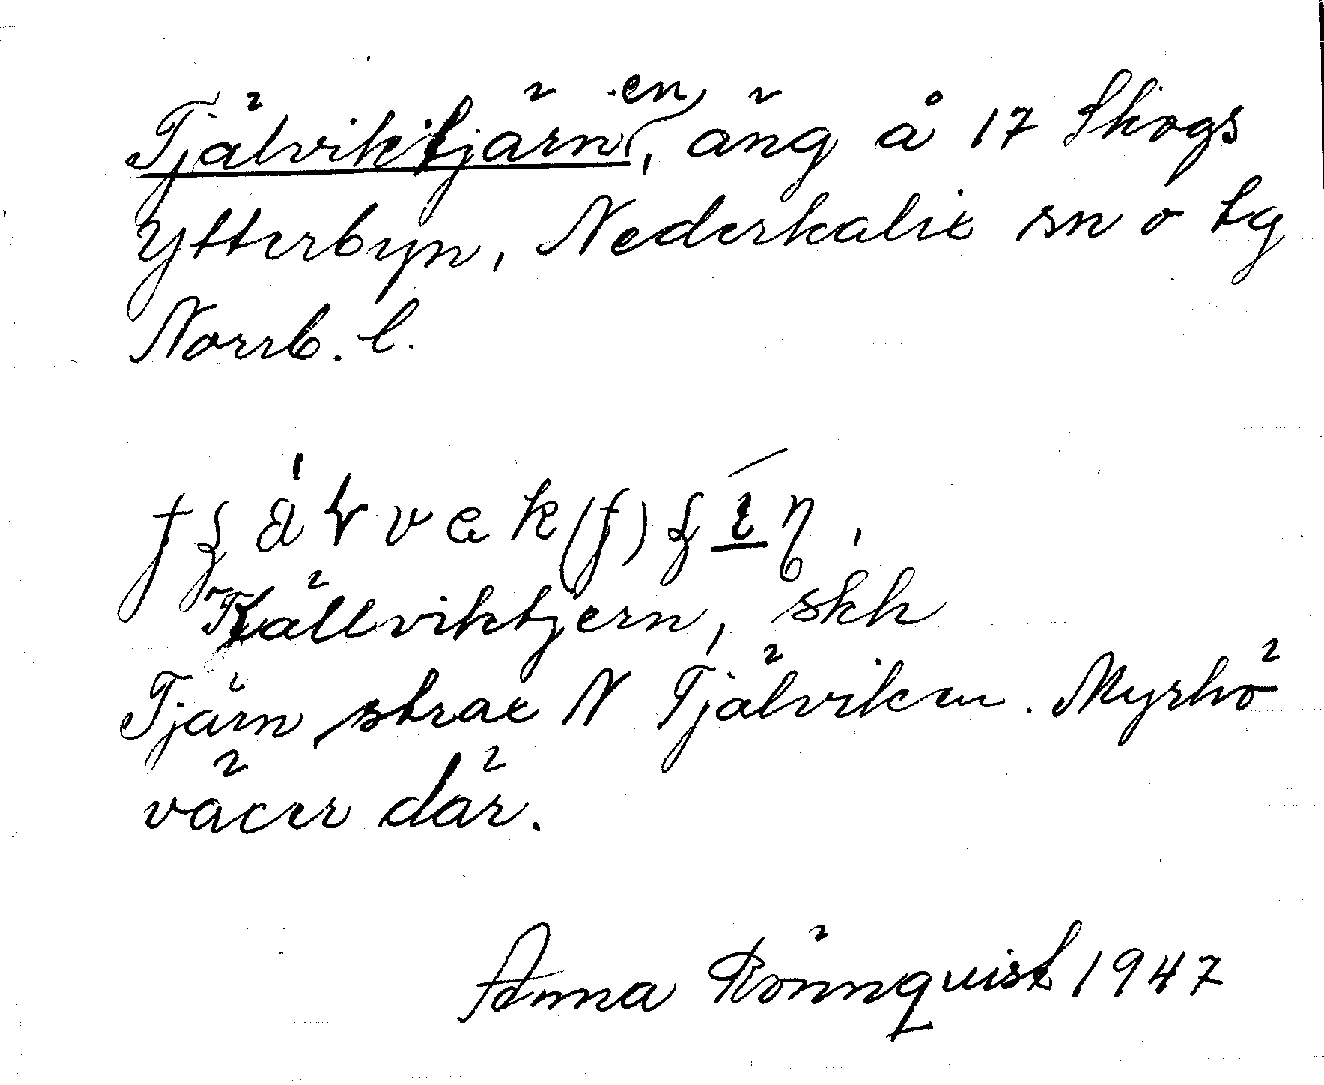 Tjälviktjärn(en), äng å 17 Skogs
Ytterbyn, Nederkalix sn o tg
Norrb. l.
Tjällviktjern, skh
Tjärn strax N Tjälviken. Myrhö
växer där.
Anna Rönnquist 1947